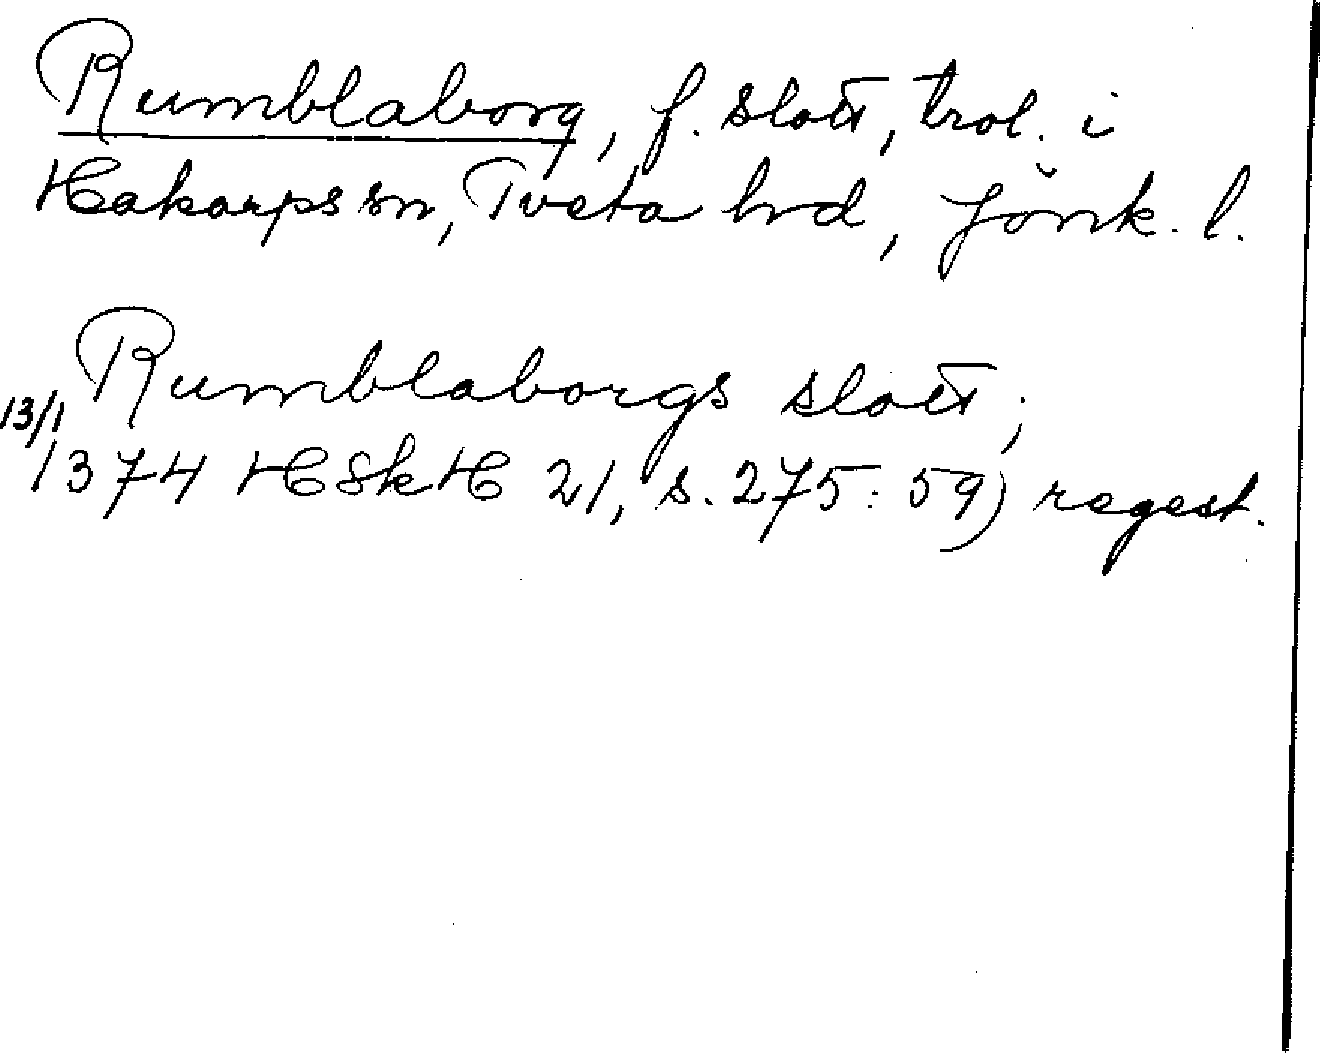 Rumblaborg, f. slott, trol. i
Hakarps sn, Tveta hd, Jönk. l.
Rumblaborgs slott;
13/1
1374 HSkH 21, s. 275: 59) regest.